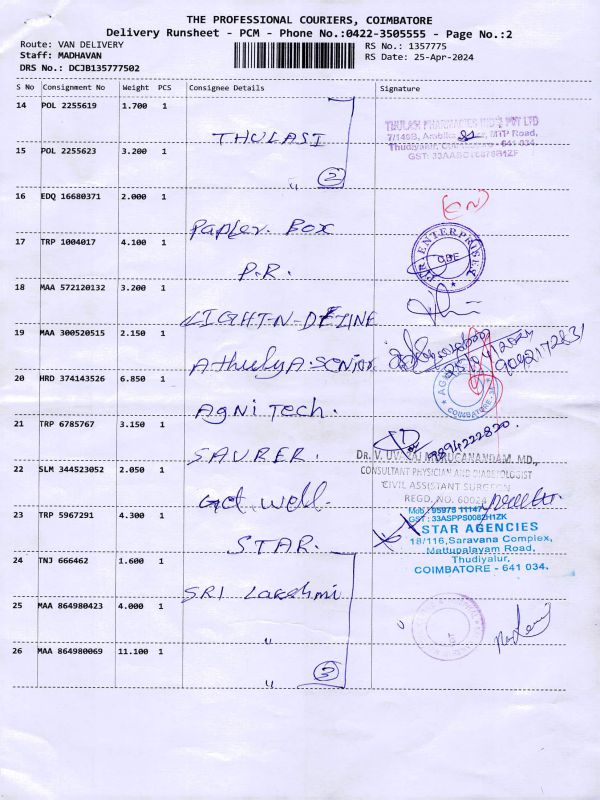 THE PROFESSIONAL COURIERS, COIMBATORE
Delivery Runsheet - PCM - Phone No.:0422-3505555 - Page No.:2
Route: VAN DELIVERY
Staff: MADHAVAN
DRS No.: DCJB135777502
RS No.: 1357775
RS Date: 25-Apr-2024
S No Consignment No Weight PCS Consignee Details Signature
14 POL 2255619 1.700 1
THULASI
THULASI PHARMACIES IND'S PVT LTD
MTP Road,
15 POL 2255623 3.200 1
" 2
16 EDQ 16680371 2.000 1
Box
17 TRP 1004017 4.100 1
P.R.
ENTERPRISES
CBE
18 MAA 572120132 3.200 1
LIGHT-N-DEZINE
19 MAA 300520515 2.150 1
Athulya.Senior
9092172831
20 HRD 374143526 6.850 1
Agni Tech.
COIMBATORE
21 TRP 6785767 3.150 1
SAURER.
9894222820.
22 SLM 344523052 2.050 1
Get well
CONSULTANT PHYSICIAN AND DIABETOLOGIST
CIVIL ASSISTANT SURGEON
REGD. NO. 60024
23 TRP 5967291 4.300 1
STAR.
Mob: 95975 11147
GST: 33ASPPS0082H1ZK
STAR AGENCIES
18/116,Saravana Complex,
Mettupalayam Road,
Thudiyalur,
COIMBATORE - 641 034.
24 TNJ 666462 1.600 1
SRI Lakshmi
25 MAA 864980423 4.000 1
"
26 MAA 864980069 11.100 1
" 3